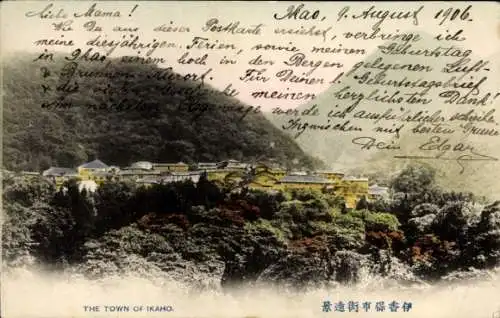 Liebe Mama!
Ikao, 9. August 1906.
Wie Du aus dieser Postkarte ersiehst, verbringe ich
meine diesjährigen Ferien, sowie meinen Geburtstag
in Ikao, einem hoch in den Bergen gelegenen Luft-
& Brunnen-Kurort. Für Deinen l. Geburtstagsbrief
& die meinen herzlichsten Dank!
im nächsten werde ich ausführlicher schreiben.
Inzwischen mit besten Grüssen
Dein Edgar
THE TOWN OF IKAHO.
伊香保市街遠景